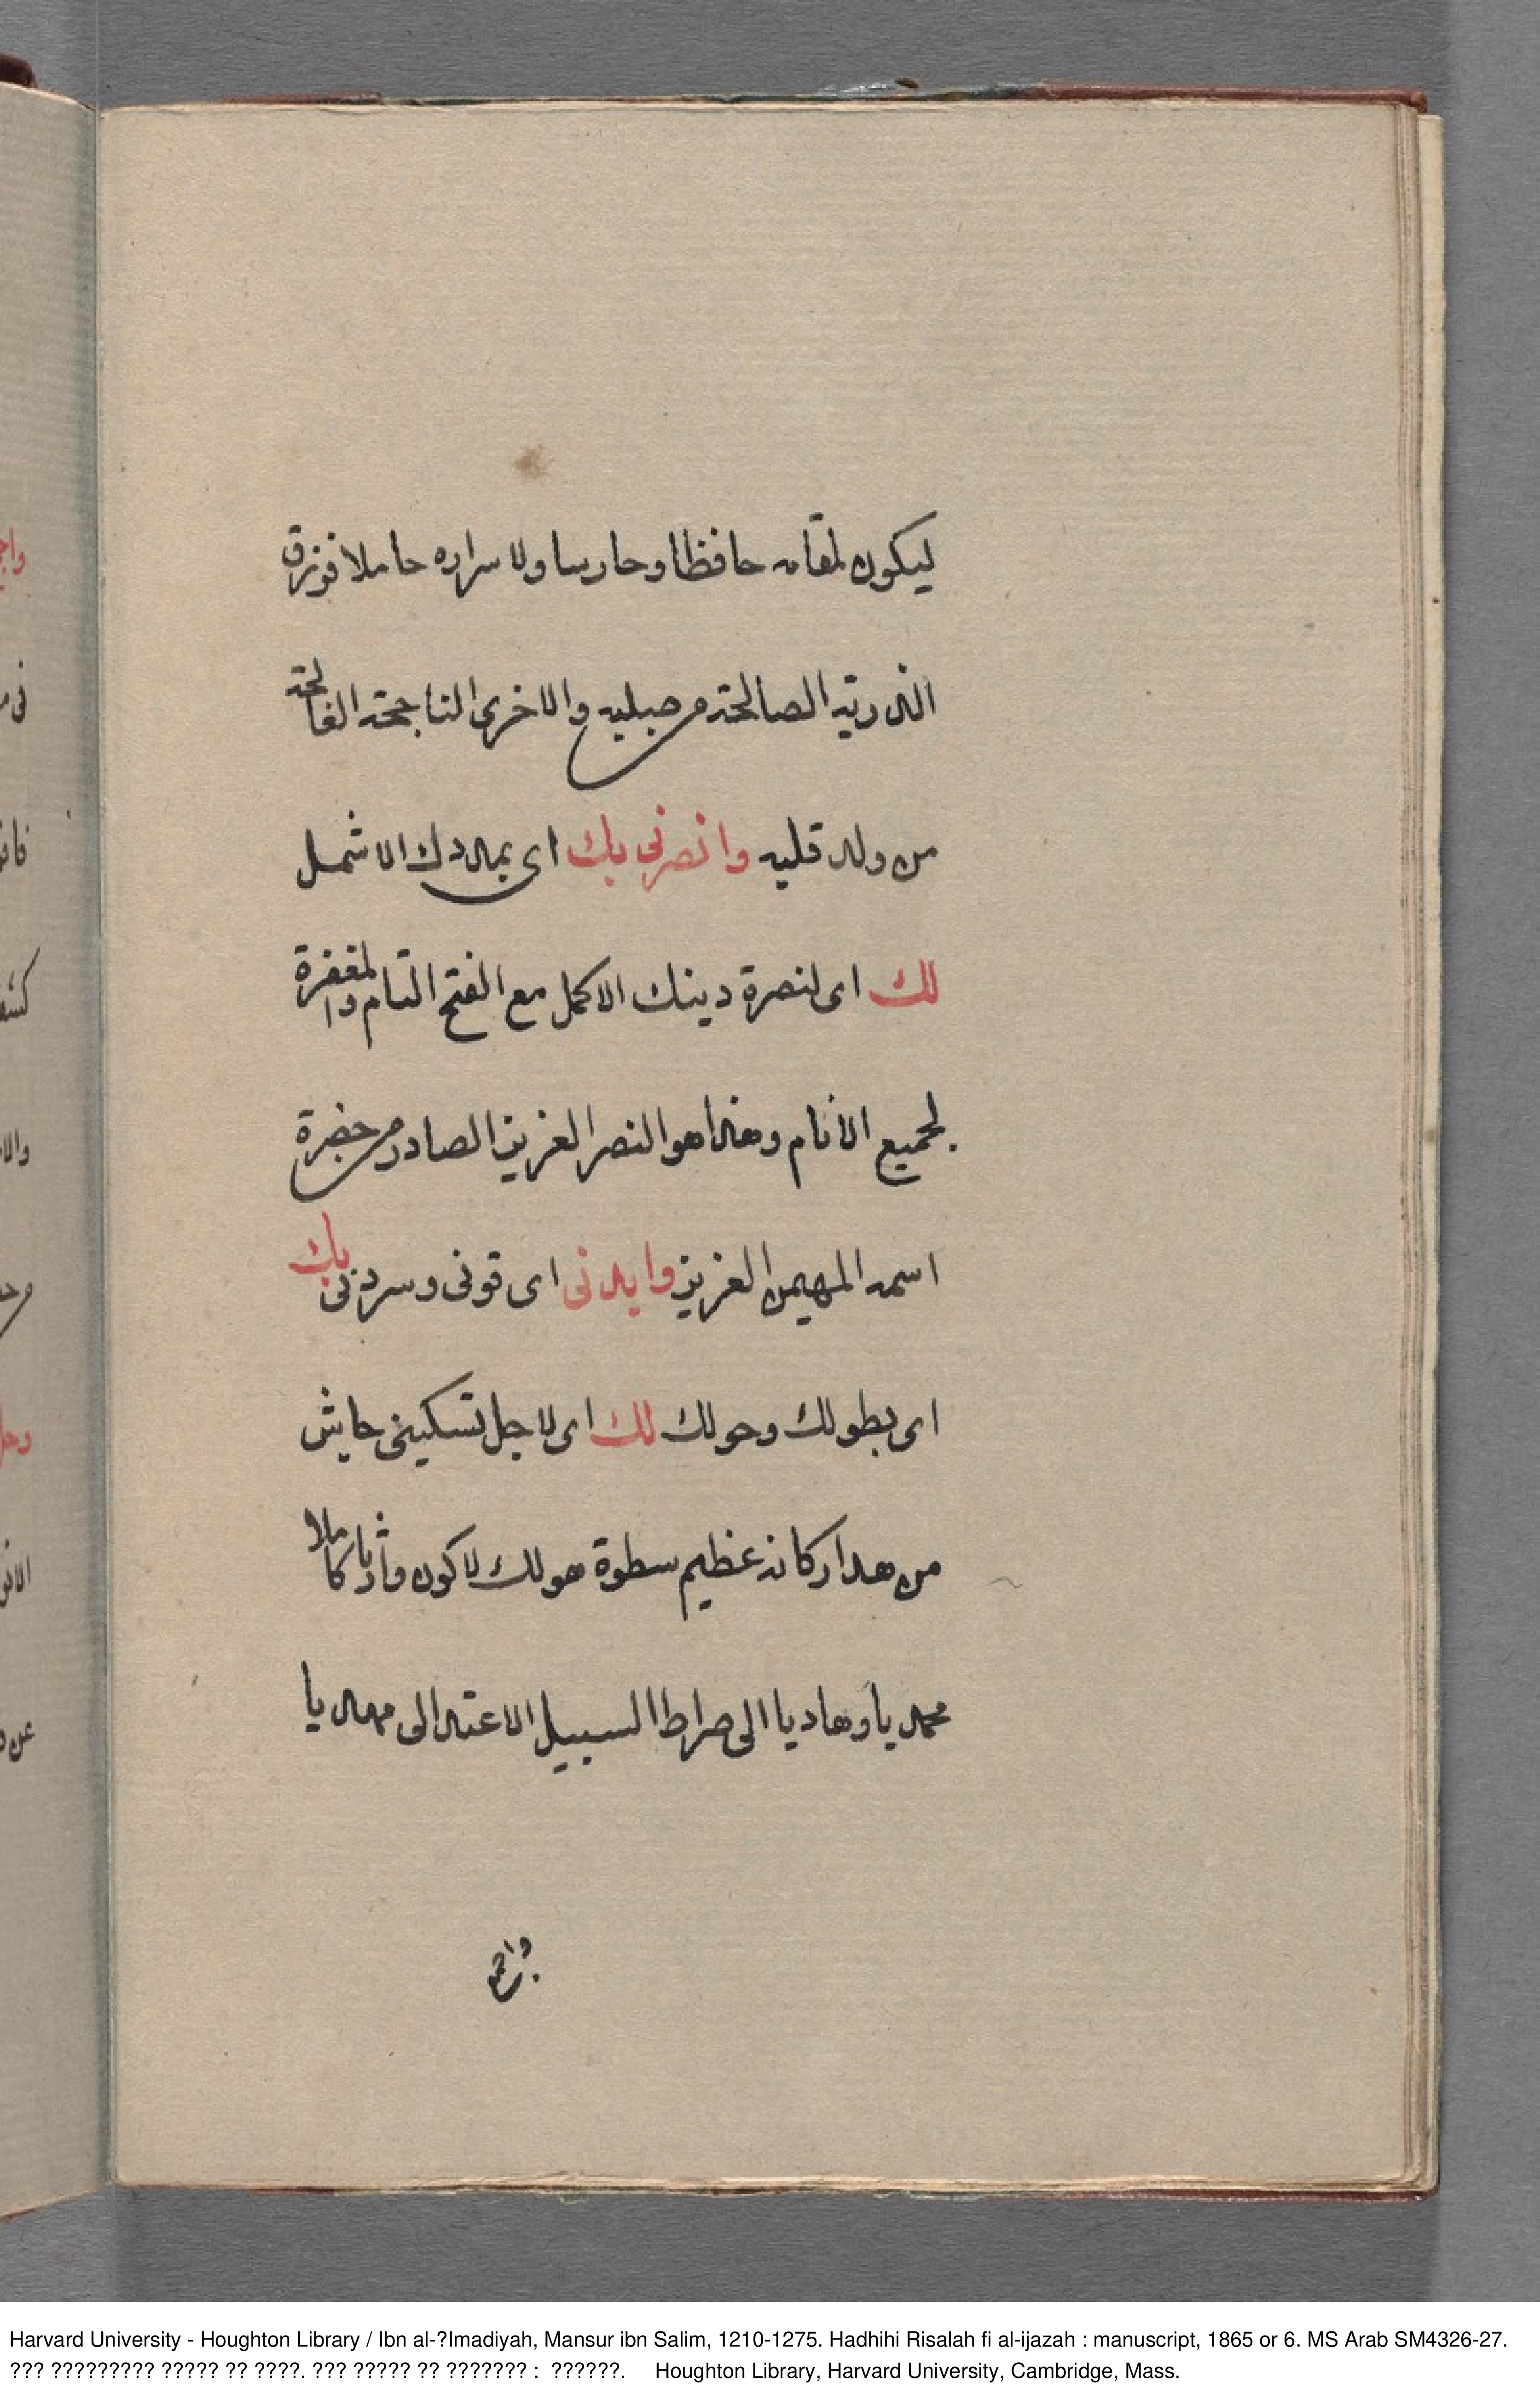 ليكون لمقامه حافظا وحارسا ولاسراره حاملا فوزرق
الذرية الصالحة من صلبيه والاخرى الناجحة الفالحة
من ولد قلبه وانصرنى بك اى بمددك الاشمل
لك اى لنصرة دينك الاكمل مع الفتح التام والمغفرة
لجميع الانام وهذا هو النصر العزيز الصادر من حضرة
اسمه المهيمن العزيز وايدنى اى قونى وسردنى بك
اى بطولك وحولك لك اى لاجل تسكينى جايش
من هد اركانه عظيم سطوة هولك لاكون وارثا كاملا
محمديا وهاديا الى صراط السبيل الاعتدالى مهديا
واجمع
واج
فى م
فاف
كشف
والا
من حـ
وحل
الانو
عن د
Harvard University - Houghton Library / Ibn al-?Imadiyah, Mansur ibn Salim, 1210-1275. Hadhihi Risalah fi al-ijazah : manuscript, 1865 or 6. MS Arab SM4326-27.
??? ????????? ????? ?? ????. ??? ????? ?? ??????? : ??????. Houghton Library, Harvard University, Cambridge, Mass.